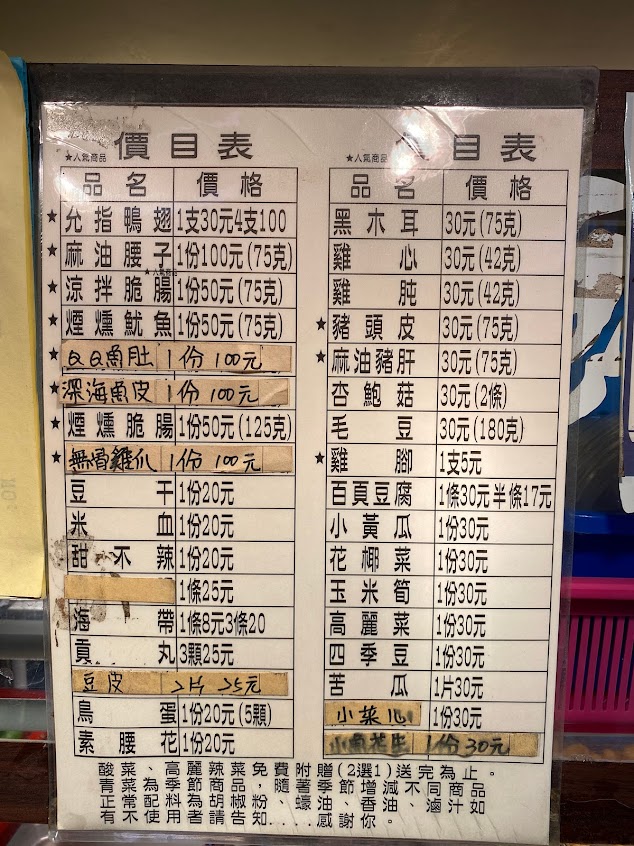 ★人氣商品 價目表
品名 價格
★允指鴨翅 1支30元4支100
★麻油腰子 1份100元(75克)
★人氣商品
★涼拌脆腸 1份50元(75克)
★煙燻魷魚 1份50元(75克)
★QQ魚肚 1份100元
★深海魚皮 1份100元
★煙燻脆腸 1份50元(125克)
★無骨雞爪 1份100元
豆干 1份20元
米血 1份20元
甜不辣 1份20元
1條25元
海帶 1條8元3條20
貢丸 3顆25元
豆皮 2片25元
鳥蛋 1份20元(5顆)
素腰花 1份20元
★人氣商品 目表
品名 價格
黑木耳 30元(75克)
雞心 30元(42克)
雞肫 30元(42克)
★豬頭皮 30元(75克)
★麻油豬肝 30元(75克)
杏鮑菇 30元(2條)
毛豆 30元(180克)
★雞腳 1支5元
百頁豆腐 1條30元半條17元
小黃瓜 1份30元
花椰菜 1份30元
玉米筍 1份30元
高麗菜 1份30元
四季豆 1份30元
苦瓜 1片30元
小菜心 1份30元
小魚花生 1份30元
酸菜、高麗辣菜免費附贈(2選1)送完為止。
青菜為季節商品，隨著季節增減不同商品
正常配料為胡椒粉、蠔油、香油、滷汁如
有不使用者請告知....感謝你。